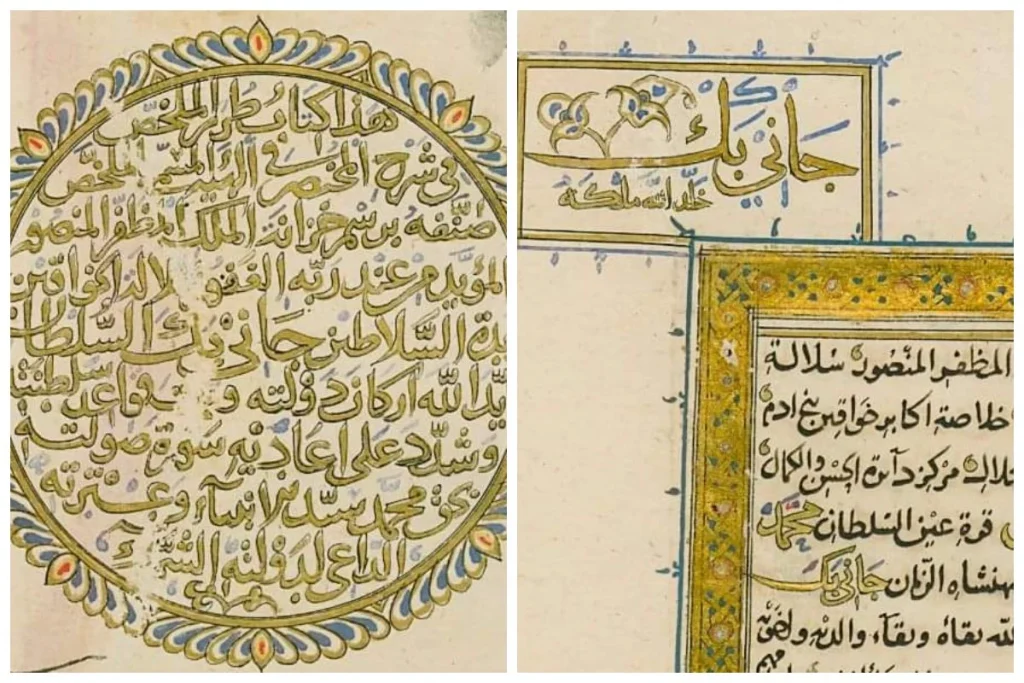 هذا كتاب طرز الملخص
فى شرح المختصر فى الهيئة الملخص
صنفه برسم خزانة الملك المظفر المنصور
المؤيد من عند ربه الغفور
السلاطين جانى بك السلطان
الله اركان دولته و قواعد سلطنته
وشدد على اعاديه سورة صولته
بحق محمد سيد الانبياء وعترته
الداعى لدولته
جانى بك
خلد الله ملكه
المظفر المنصور سلالة
خلاصة اكابر خواقين بنى ادم
مركز دائرة الحسن والكمال
قرة عين السلطان محمد
الزمان جانى بك
الله بقاه وبقاء والديه واخوته